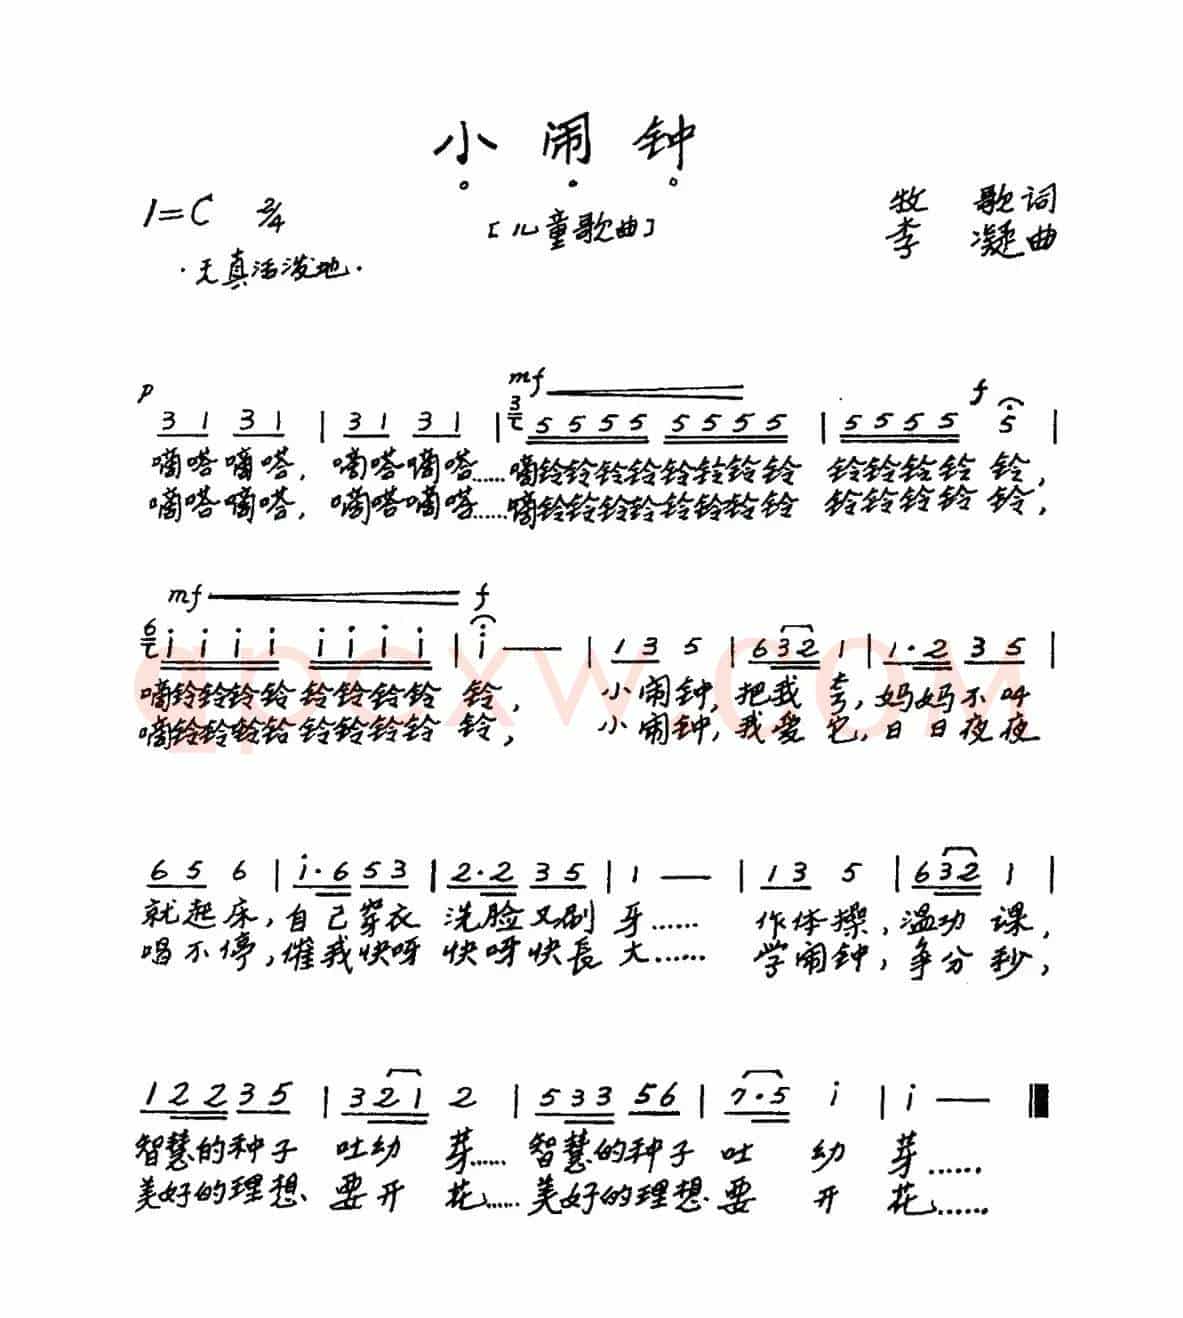 小闹钟
1=C 2/4
[儿童歌曲]
牧 歌词
李 凝曲
·天真活泼地·
p mf f
3 1 3 1 | 3 1 3 1 | 3 5 5 5 5 5 5 5 5 | 5 5 5 5 5 |
嘀嗒嘀嗒, 嘀嗒嘀嗒……嘀铃铃铃铃铃铃铃铃 铃铃铃铃 铃,
嘀嗒嘀嗒, 嘀嗒嘀嗒……嘀铃铃铃铃铃铃铃铃 铃铃铃铃 铃,
mf f
6 i i i i i i i i | i — | 1 3 5 | 6 3 2 1 | 1·2 3 5 |
嘀铃铃铃铃 铃铃铃铃 铃, 小闹钟, 把我夸, 妈妈不叫
嘀铃铃铃铃 铃铃铃铃 铃, 小闹钟, 我爱它, 日日夜夜
qpcxw.com
6 5 6 | i·6 5 3 | 2·2 3 5 | 1 — | 1 3 5 | 6 3 2 1 |
就起床, 自己穿衣 洗脸又刷 牙…… 作体操, 温功 课,
唱不停, 催我快呀 快呀快長 大…… 学闹钟, 争分 秒,
1 2 2 3 5 | 3 2 1 2 | 5 3 3 5 6 | 7·5 i | i —
智慧的种子 吐幼 芽…… 智慧的种子 吐 幼 芽……
美好的理想 要开 花…… 美好的理想 要 开 花……